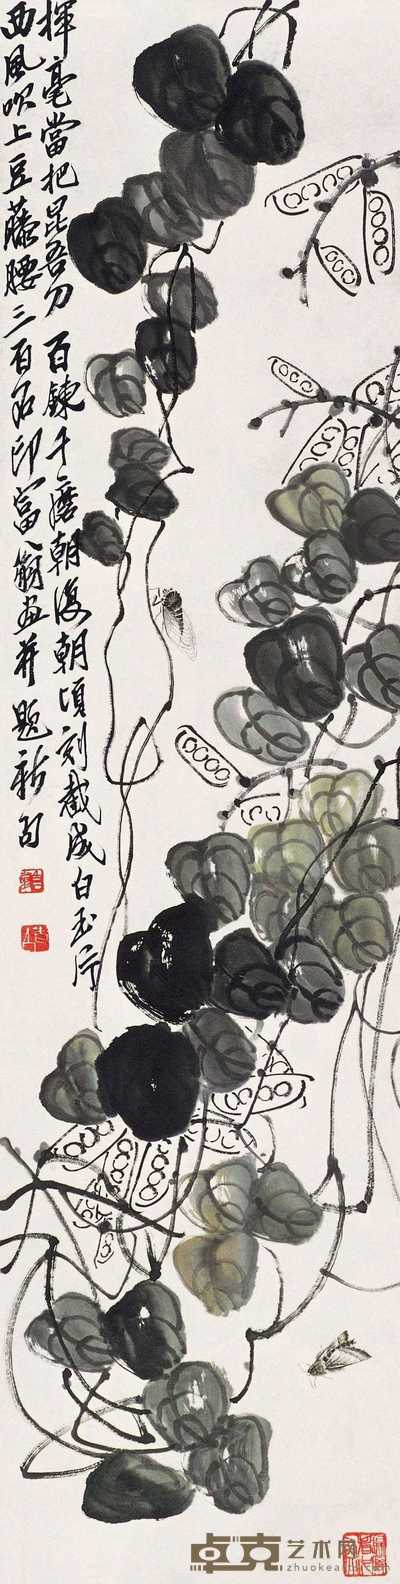 揮毫當把昆吾刀百鍊千磨朝復朝頃刻截成白玉片
西風吹上豆藤腰三百石印富翁畫并題新句
卓克艺术网